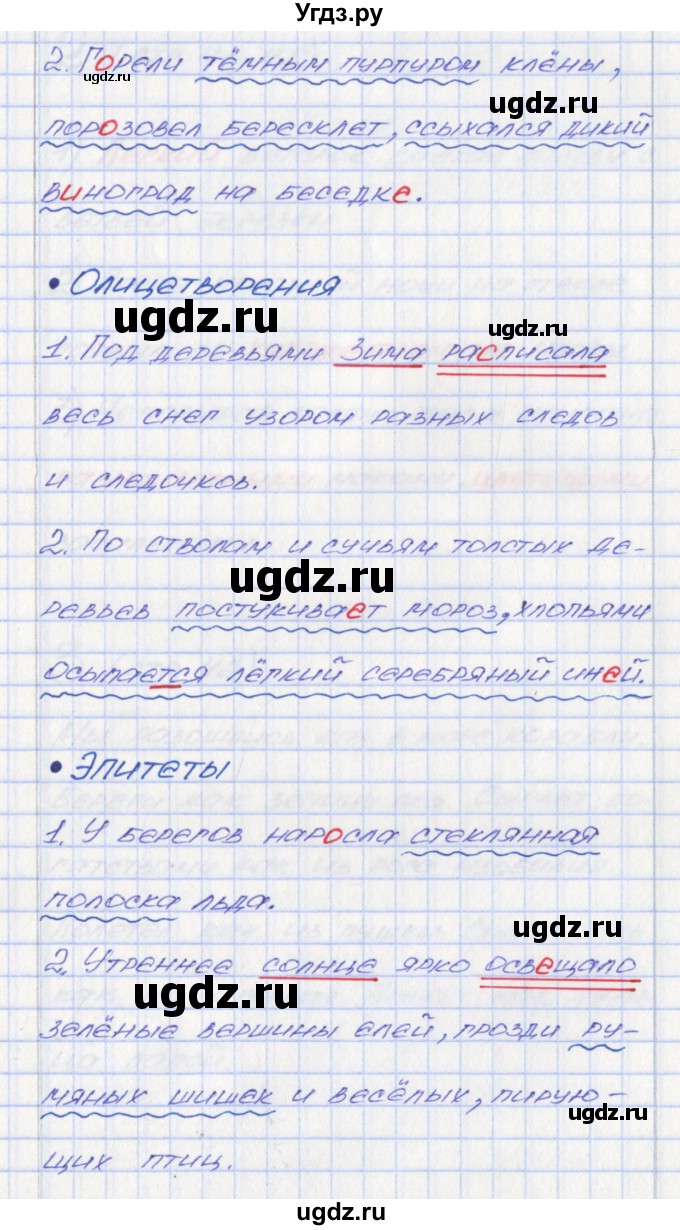 Угдз.ру
2. Горели тёмным пурпуром клёны,
ugdz.ru
ugdz.ru
порозовел бересклет, ссыхался дикий
виноград на беседке.
• Олицетворения
ugdz.ru
1. Под деревьями Зима расписала
весь снег узором разных следов
и следочков.
2. По стволам и сучьям толстых де-
ugdz.ru
ревьев постукивает мороз, хлопьями
осыпается лёгкий серебряный иней.
• Эпитеты
1. У берегов наросла стеклянная
полоска льда.
ugdz.ru
2. Утреннее солнце ярко освещало
ugdz.ru
зелёные вершины елей, грозди ру-
мяных шишек и весёлых, пирую-
ugdz.ru
щих птиц.
ugdz.ru